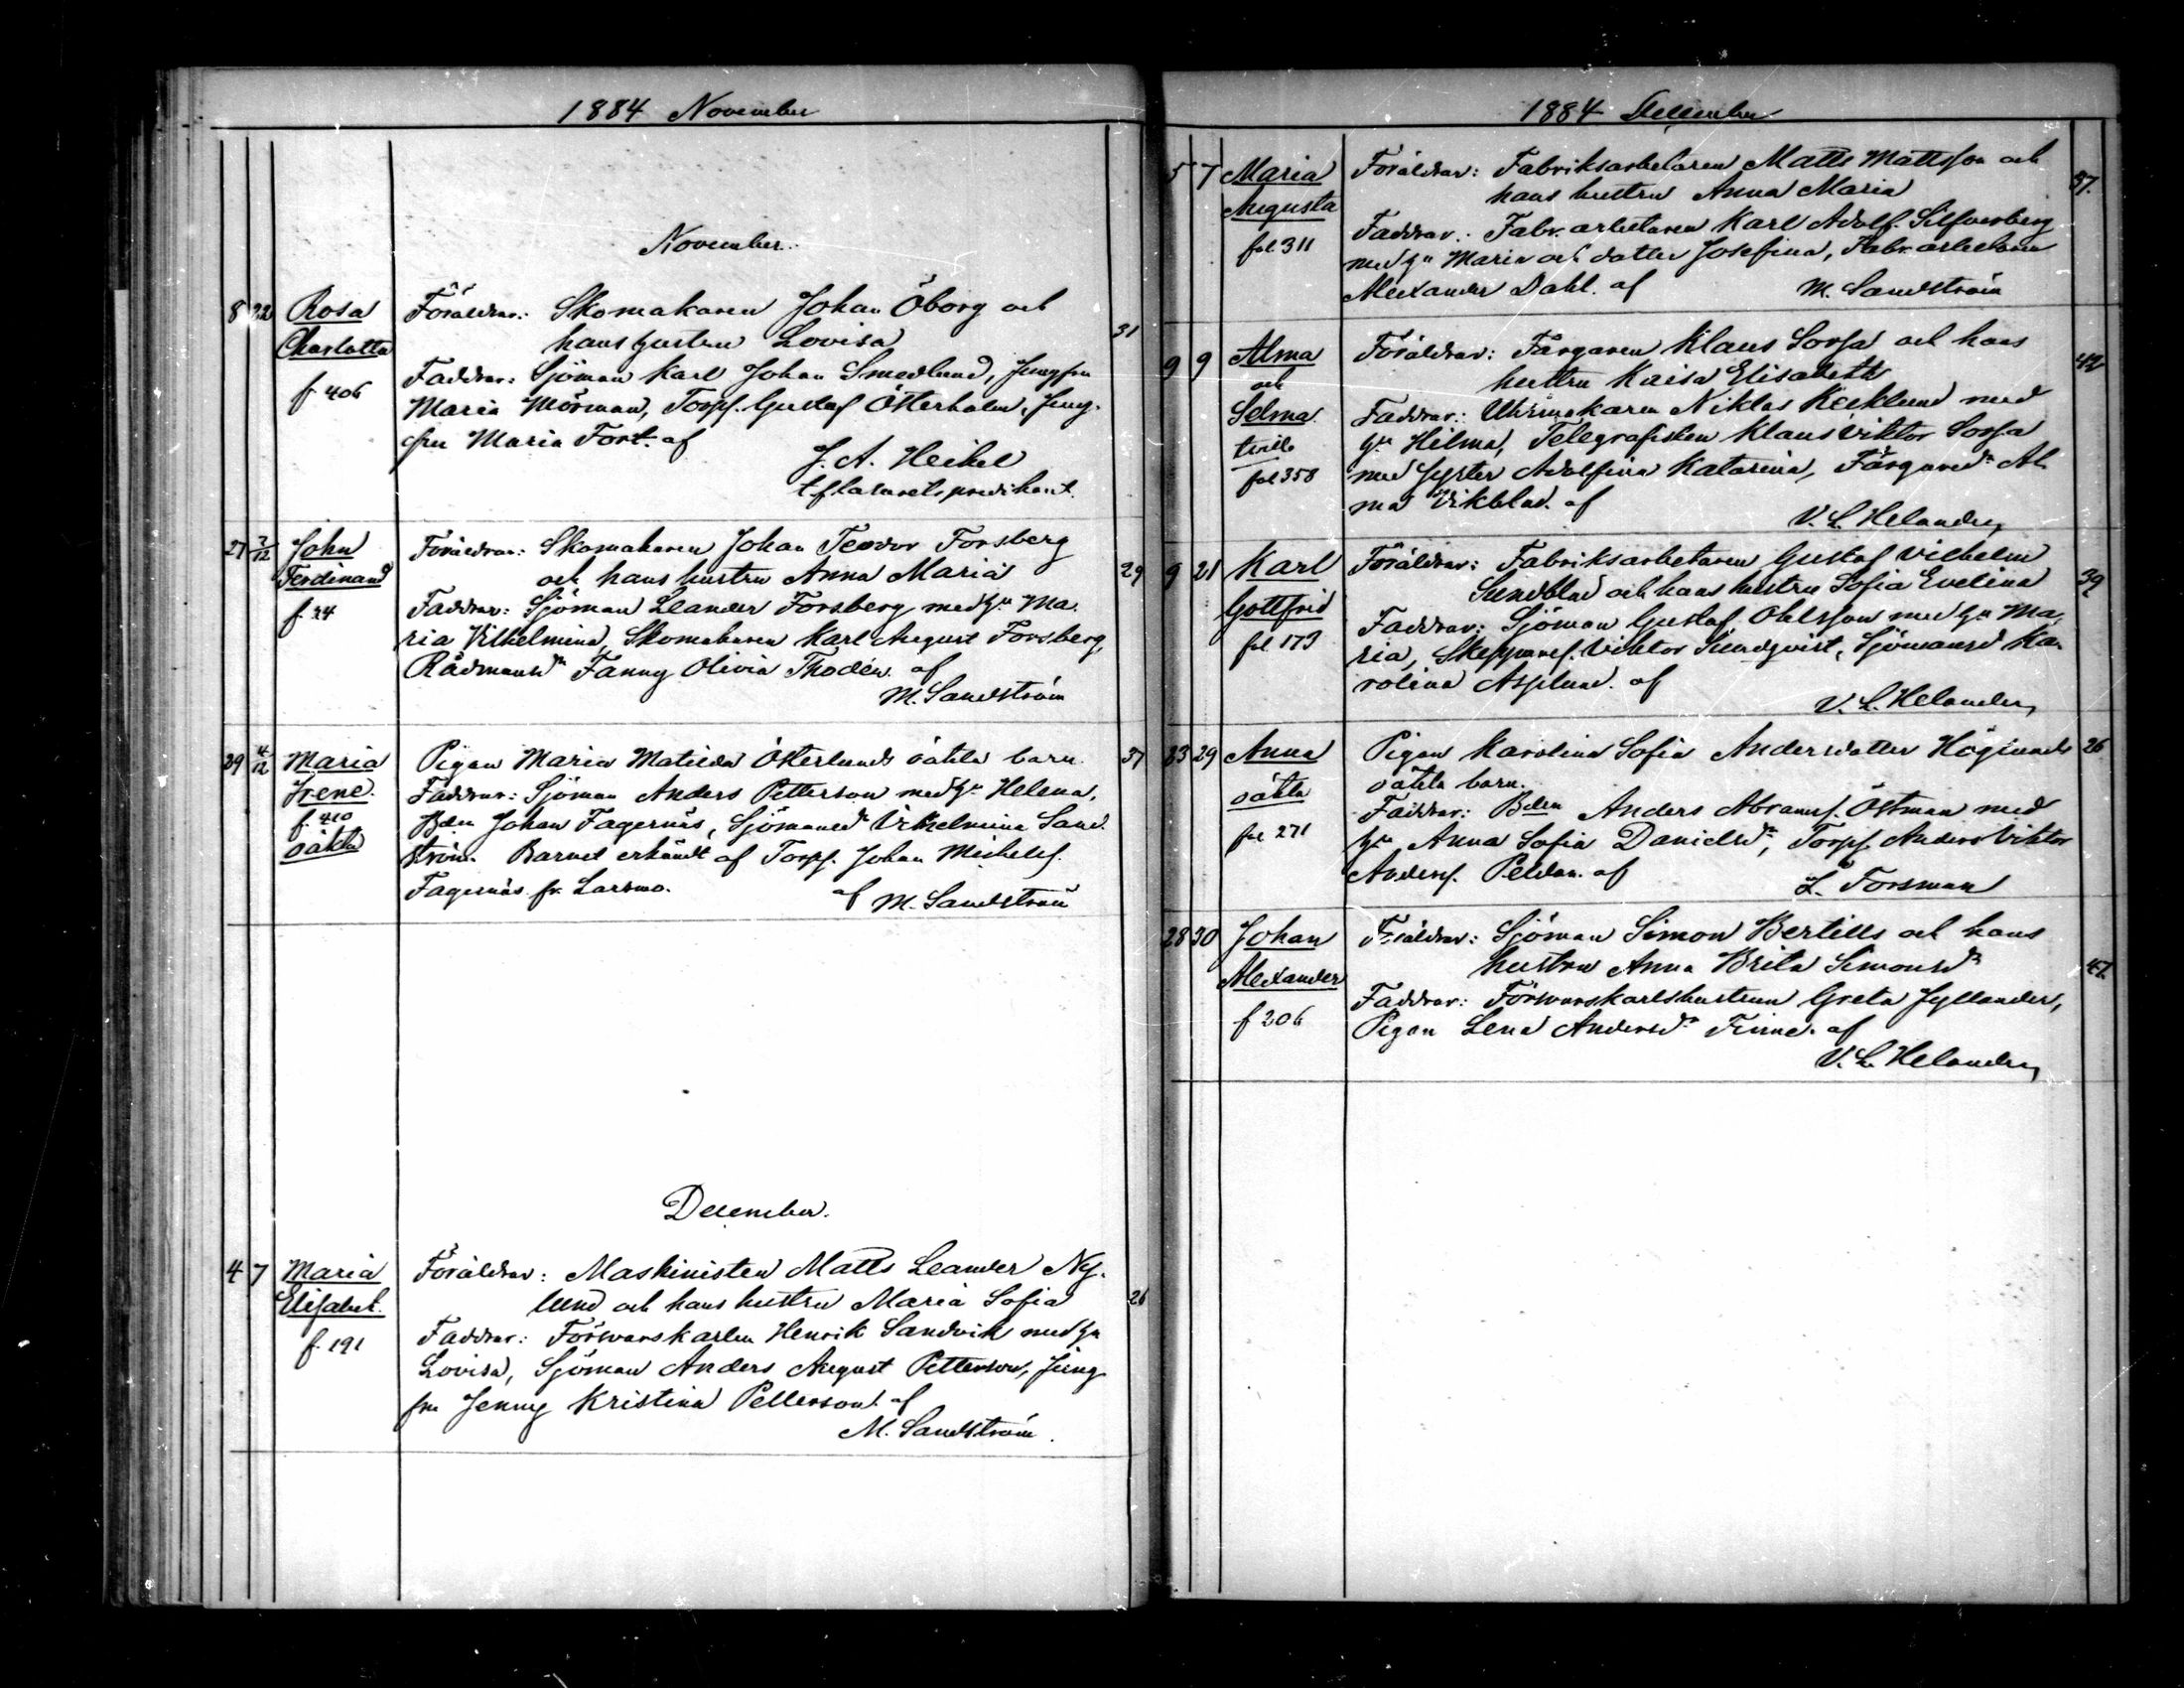 1884 November
November.
8 22 Rosa Föräldrar: Skomakaren Johan Öborg och
Charlotta hans hustru Lovisa 31
f 406 Faddrar: Sjöman Karl Johan Smedlund, Jungfru
Maria Mörman, Torps. Gustaf Österholm, Jung-
fru Maria Fort. af
J. A. Heikel
t.f. lasaretspredikant.
27 2/12 John Föräldrar: Skomakaren Johan Teodor Forsberg
Ferdinand och hans hustru Anna Maria 29
f. 24 Faddrar: Sjöman Leander Forsberg med hu Ma-
ria Vilhelmina, Skomakaren Karl August Forsberg,
Rådmansdr Fanny Olivia Thodén. af
M. Sandström
29 4/12 Maria Pigan Maria Matilda Österlunds oäkta barn. 37
Irene. Faddrar: Sjöman Anders Petterson med hu Helena,
f. 410 Bdn Johan Fagernäs, Sjömansdr Vilhelmina Sand-
oäkta ström. Barnet erkändt af Torps. Johan Michelss.
Fagernäs fr. Larsmo. af M. Sandström
December.
4 7 Maria Föräldrar: Maskinisten Matts Leander Ny-
Elisabet. lund och hans hustru Maria Sofia 26
f. 191 Faddrar: Försvarskarlen Henrik Sandvik med hu
Lovisa, Sjöman Anders August Petterson, Jung-
fru Jenny Kristina Petterson. af
M. Sandström.
1884 December
5 7 Maria Föräldrar: Fabriksarbetaren Matts Mattsson och
Augusta hans hustru Anna Maria 37.
fol 311 Faddrar: Fabr. arbetaren Karl Adolf Silfversberg
med hu Maria och dotter Josefina, Fabr. arbetaren
Alexander Dahl. af M. Sandström
9 9 Alma Föräldrar: Färgaren Klaus Sorsa och hans
och hustru Kaisa Elisabeth 42
Selma Faddrar: Uhrmakaren Niklas Kecklund med
tvill. hu Hilma, Telegrafisten Klaus Viktor Sorsa
fol 358 med syster Adolfina Katarina, Färgaredr Al-
ma Vikblad. af
V. L. Helander
9 21 Karl Föräldrar: Fabriksarbetaren Gustaf Vilhelm
Gottfrid Sundblad och hans hustru Sofia Evelina 39
fol 173 Faddrar: Sjöman Gustaf Ohlsson med hu Ma-
ria, Skeppares. Viktor Sundqvist, Sjömansd Ka-
rolina Asplund. af
V. L. Helander
23 29 Anna Pigan Karolina Sofia Andersdotter Höglunds 26
oäkta oäkta barn.
fol 271 Faddrar: Bdn Anders Abramss. Östman med
hu Anna Sofia Danielsdr, Torps. Anders Viktor
Anderss. Peldan. af L. Forsman
28 30 Johan Föräldrar: Sjöman Simon Bertills och hans
Alexander hustru Anna Brita Simonsdr 47.
f 206 Faddrar: Försvarskarlshustrun Greta Jyllander,
Pigan Lena Andersdr Finne. af
V. L. Helander